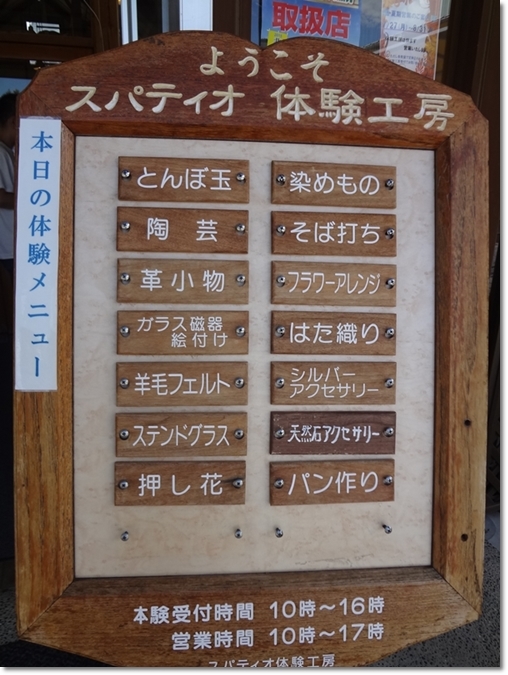 取扱店
ようこそ
スパティオ 体験工房
本日の体験メニュー
とんぼ玉
染めもの
陶芸
そば打ち
革小物
フラワーアレンジ
ガラス磁器
絵付け
はた織り
羊毛フェルト
シルバー
アクセサリー
ステンドグラス
天然石アクセサリー
押し花
パン作り
体験受付時間 10時～16時
営業時間 10時～17時
スパティオ体験工房